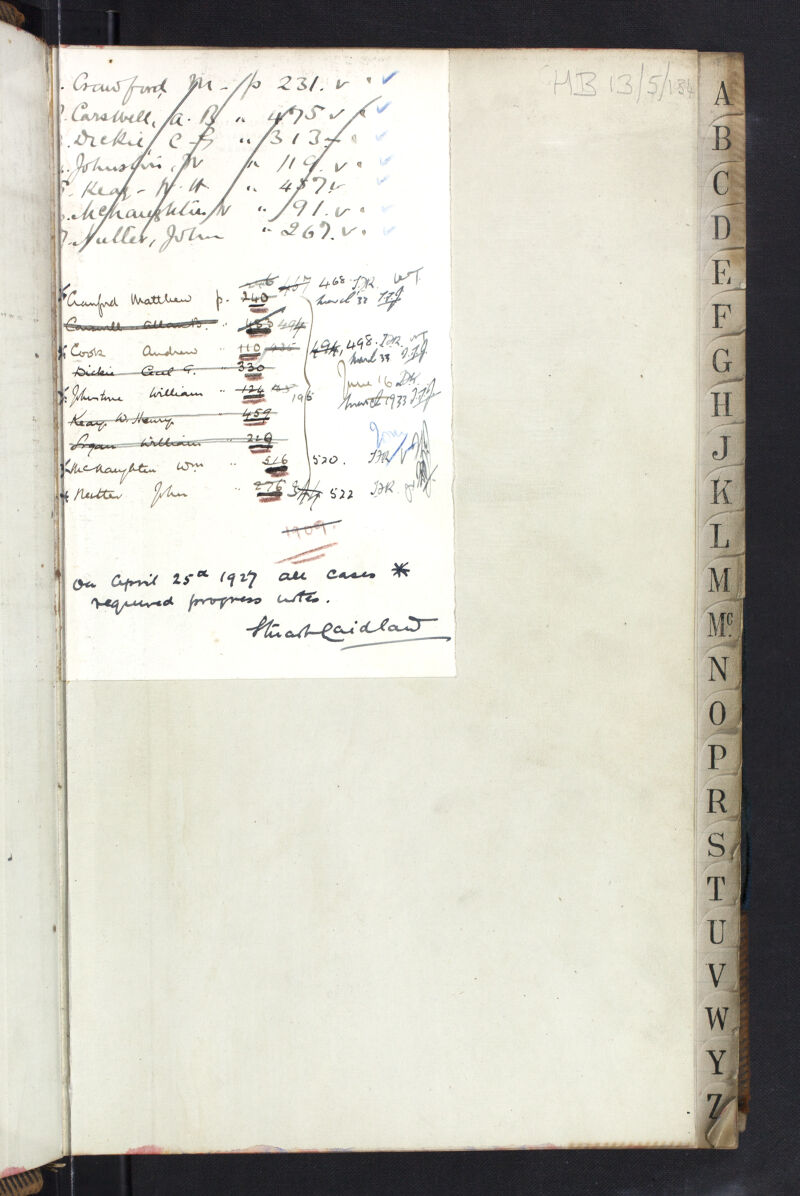 HB 13/5/184
Crawford, M - p 231. v
Carswell, A. B " 475 v
Dickie, C G " 313 -
Johnston, W " 119. v
Keay - W. H " 457 v
McNaughton W " 191. v
Nutter, John " 267. v
Cranford Matthew p. 240 467 468 DR. WT
March 33
Carswell Allan B. " 483 494
Cook Andrew " 110 494, 498. DR. WT
March 33
Dickie Cecil G. " 330
Johnstone William " 124 196 June 16 DR
March 1933
Keay. W. Henry. " 459
Logan William " 219
McNaughton Wm " 516 520. DR
Nutter John " 276 522 DR
1909.
On April 25th 1927 all cases *
required progress notes.
Stuart Laidlaw
A
B
C
D
E
F
G
H
J
K
L
M
Mc.
N
O
P
R
S
T
U
V
W
Y
Z